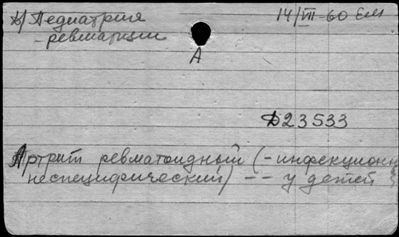 в) Педиатрия 14/VII-60 Ем
- ревматизм
А
Д23533
Артрит ревматоидный (-инфекционн
неспецифический) -- у детей